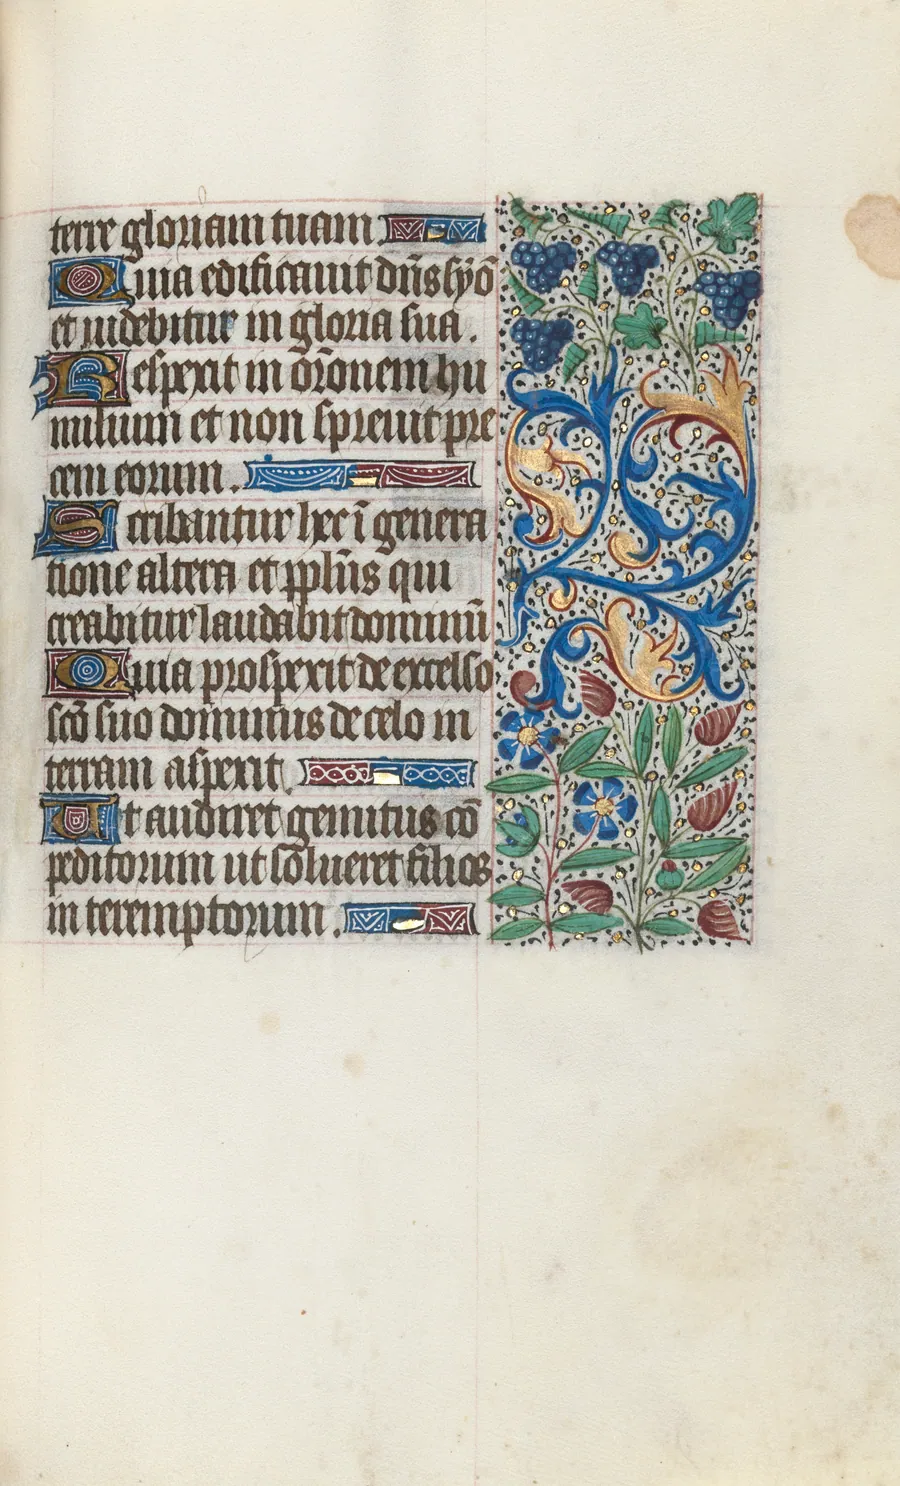 terre gloriam tuam
Quia edificauit dn̄s syō
et uidebitur in gloria sua.
Respexit in ōrōnem hu
milium et non spreuit pre
cem eorum.
Scribantur hec ī genera
tione altera et pplūs qui
creabitur laudabit dominū
Quia prospexit de excelso
scō suo dominus de celo in
terram aspexit
Ut audiret gemitus cō
peditorum ut solueret filios
in teremptorum.